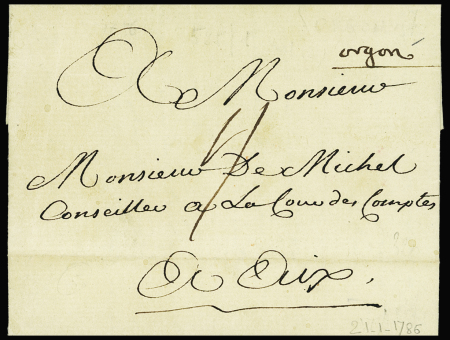 orgon
A Monsieur
4
Monsieur De Michel
Conseiller a La Cour des Comptes
A Aix.
21-1-1786